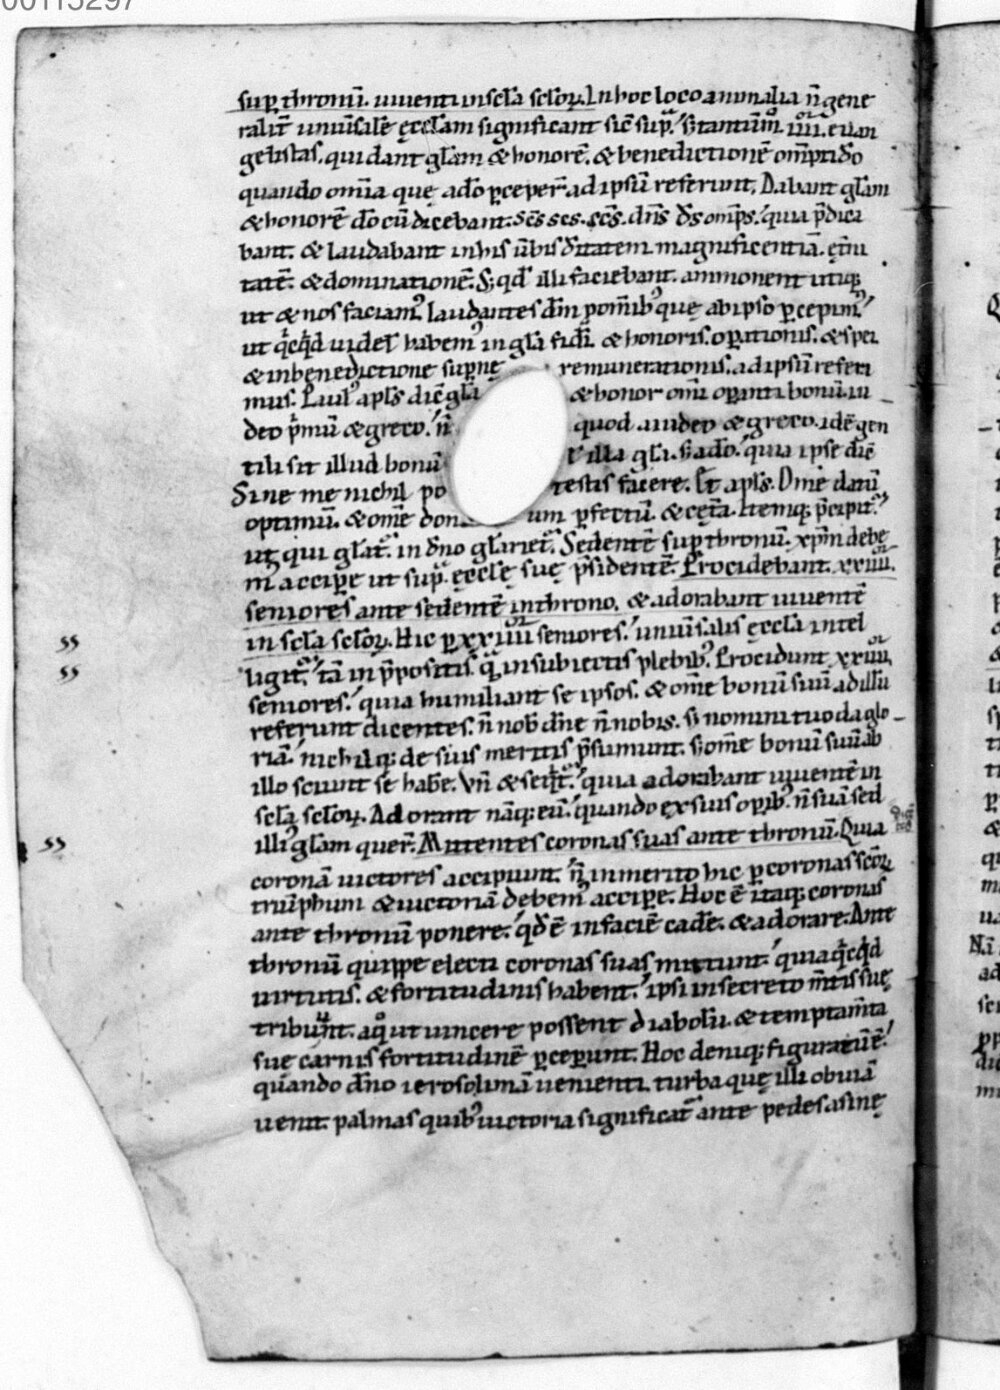 00115297
sup thronū. uiuenti in scła scłoꝝ. In hoc loco animalia ñ gene
ralit̄ uniūsalē ęccłam significant sic̄ sup̄. s; tantum̄ iiii. euan
gelistas, qui dant głam & honorē. & benedictionē omp̄ti dō
quando om̄ia quę a dō ꝑceper̄ ad ipsū referunt. Dabant głam
& honorē dō cū dicebant. Sc̄s sc̄s. sc̄s. dn̄s ds̄ omp̄s. quia p̄dica
bant. & laudabant in his ūbis ditatem magnificentiā. et̄ni
tatē. & dominationē. S; qđ illi faciebant. ammonent utiq;
ut & nos faciam᾽. laudantes dm̄ ꝑ om̄ib᾽ quę ab ipso ꝑcepim᾽.
ut q̄cq̄d uidet᷑ habem᾽ in głā fidi. & honoris. opationis. & spei
& in benedictione supnę remunerationis. ad ipsū referi
mus. Paul᾽ apłs dic̄ głā & honor om̄i opanti bonū iu
deo p̄mū & greco. ñ quod a iudeo & greco. idē gen
tili sit illud bonū illa głi. s; a dō. quia ipse dic̄
Sine me nichil po testis facere. Et apłs. Om̄e datū
optimū. & om̄e don um ꝑfectū. & cęt̄a. Itemq; p̄cipit᷑.
ut qui głat᷑. in dn̄o głariet᷑. Sedentē sup thronū. xp̄m debe
m᾽ accipe ut sup̄. ęccłę suę p̄sidentē. Procidebant. xxiiii.
seniores ante sedentē in throno. & adorabant uiuentē
in scła scłoꝝ. Hic ꝑ xxiiii seniores. uniūsalis ęccła intel
ligit᷑. tā in p̄positis. q̄ in subiectis plebib᾽. Procidunt xxiiii.
seniores. quia humiliant se ipsos. & om̄e bonū suū ad illū
referunt dicentes. ñ nob̄ dn̄e ñ nobis. s; nomini tuo da glo
riā. nichilq; de suis meritis p̄sumunt. s; om̄e bonū suū ab
illo sciunt se hab̄e. Vn̄ & seq̄t᷑. quia adorabant uiuentē in
scła scłoꝝ. Adorant nāq; eū. quando ex suis opib᾽. ñ suā sed
illi᾽ głam quer̄. Mittentes coronas suas ante thronū. Quia
coronā uictores accipiunt. ñ inmerito hic ꝑ coronas sc̄oꝝ
triūphum & uictoriā debem᾽ accipe. Hoc ē itaq; coronas
ante thronū ponere. qđ ē in faciē cade. & adorare. Ante
thronū quippe electi coronas suas mittunt. quia q̄cq̄d
uirtutis. & fortitudinis habent. ipsi in secreto m̄tis suę
tribuunt. a qͦ ut uincere possent diabolū. & temptam̄ta
suę carnis fortitudinē ꝑcepunt. Hoc deniq; figuratū ē.
quando dn̄o ierosolimā uenienti. turba quę illi obuiā
uenit. palmas quib᾽ uictoria significat᷑ ante pedes asinę